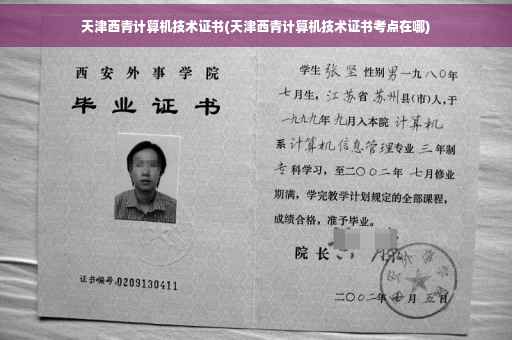 天津西青计算机技术证书(天津西青计算机技术证书考点在哪)
西安外事学院
毕业证书
证书编号:0209130411
学生 张坚 性别 男 一九八〇年
七月生,江苏省 苏州县(市)人,于
一九九九年 九月入本院 计算机
系 计算机信息管理专业 三 年制
专科学习,至二〇〇二年 七月修业
期满,学完教学计划规定的全部课程,
成绩合格,准予毕业。
院长
二〇〇二年 七月 五日